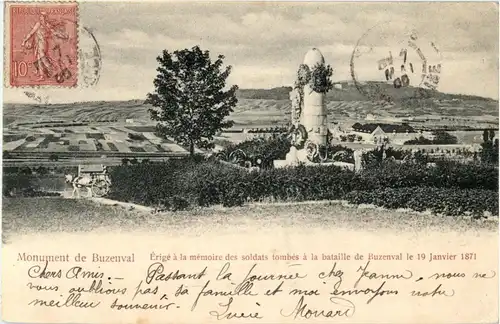 10
Monument de Buzenval Érigé à la mémoire des soldats tombés à la bataille de Buzenval le 19 Janvier 1871
Chers Amis. Passant la journée chez Jeanne, nous ne
vous oublions pas, sa famille et moi envoyons notre
meilleur souvenir. Lucie Monard